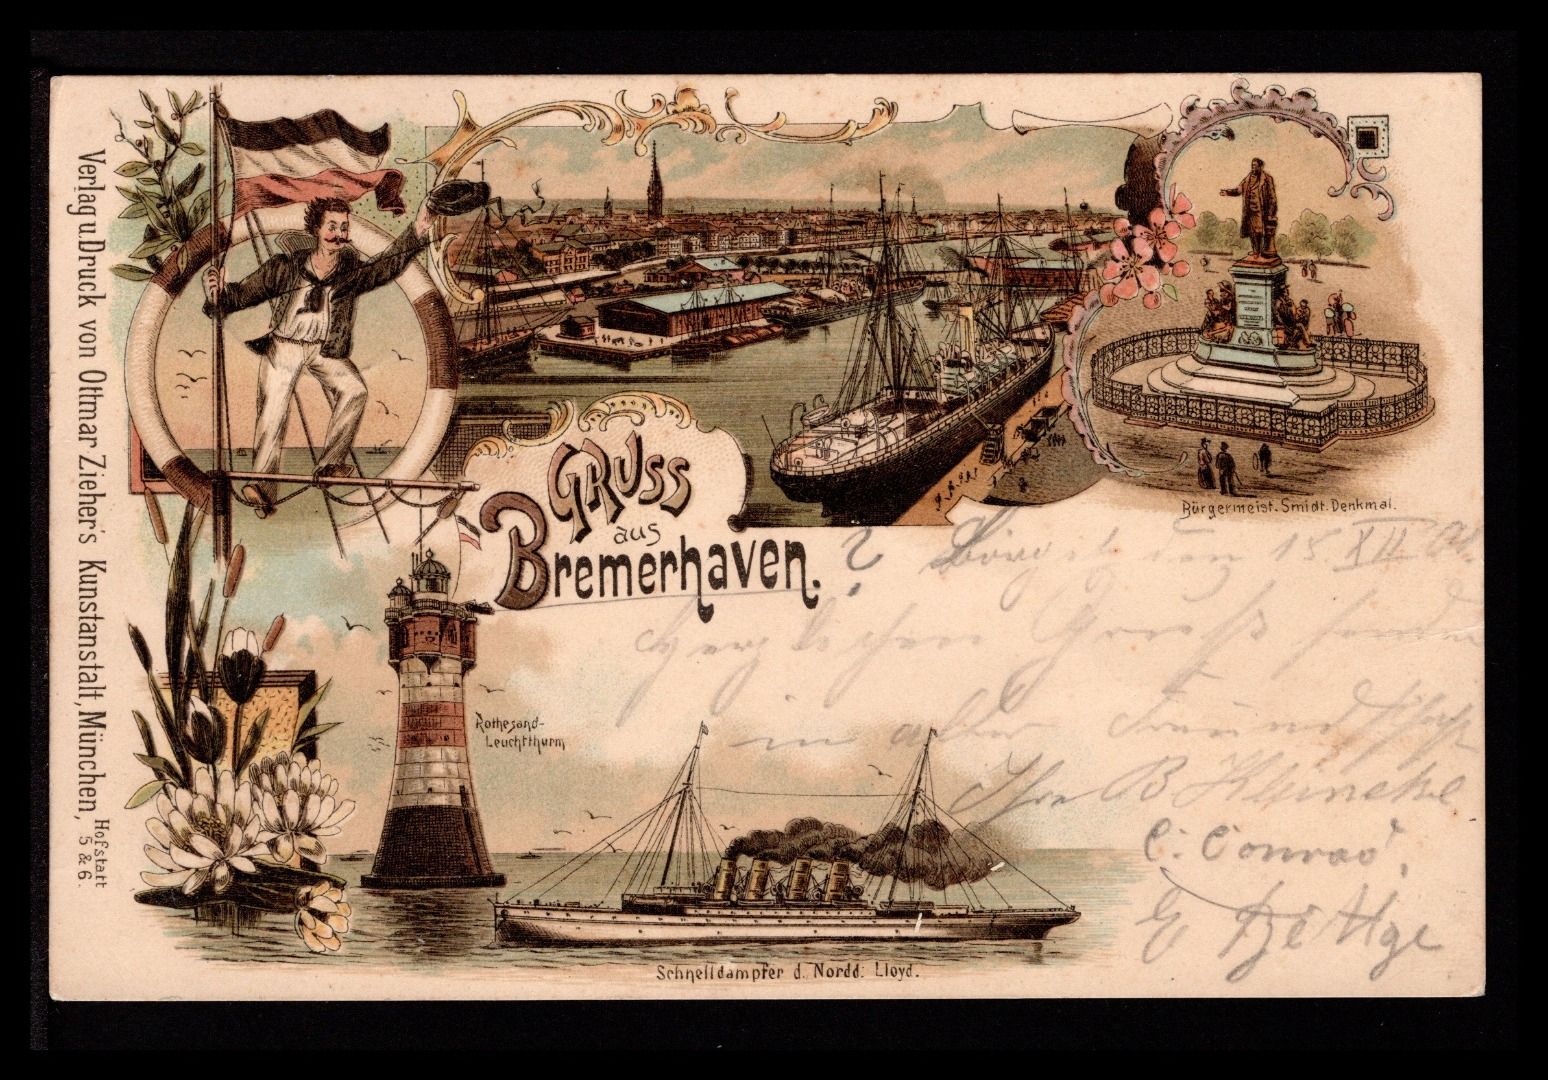 Verlag u. Druck von Ottmar Zieher's Kunstanstalt, München, Hofstatt 5 & 6.
GRUSS
aus
Bremerhaven.
Bürgermeist. Smidt. Denkmal.
den 15 XII
Gruß
in alter Freundschaft
Ihr B
C. Conrad.
E
Rothesand-
Leuchtthurm
Schnelldampfer d. Nordd. Lloyd.